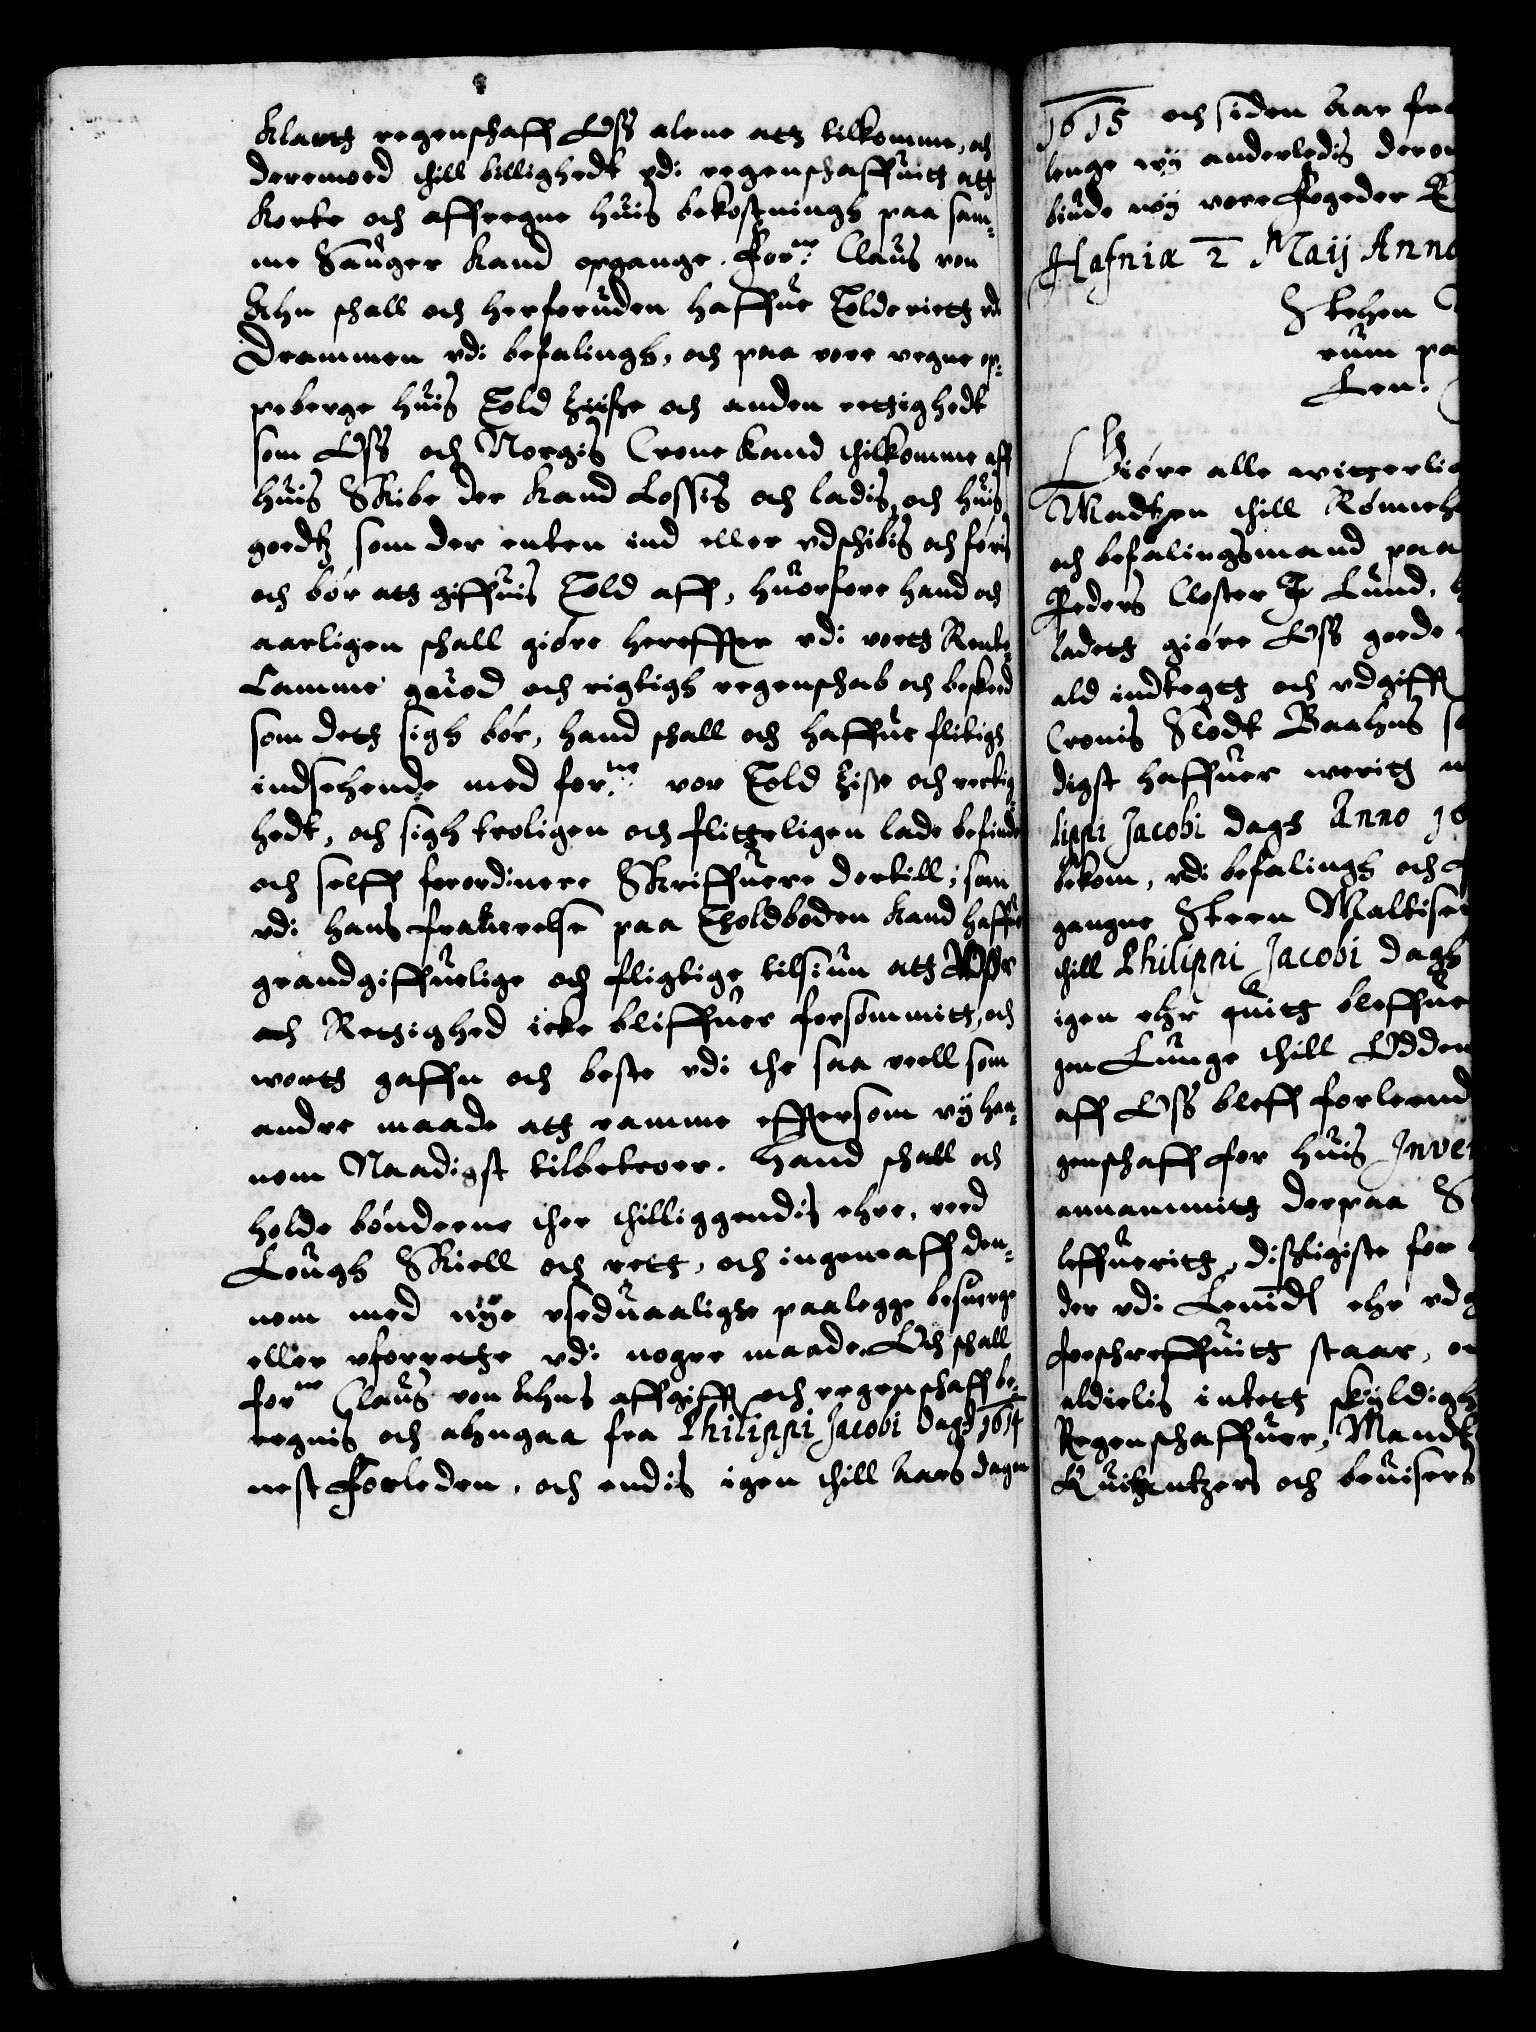 Klartt regenschaff Oss alene att tilkomme, och
deremoed thill billighedt vdi regenschaffuitt att
korte och affregne huis bekostningh paa sam¬
me Sauger kand opgange. Forne: Claus von
Ahn shall och herforuden haffue Tolderiett vdi
Drammen vdi befalingh, och paa vore vegne op¬
peberge huis Told Zisse och anden rettighedt
som Oss och Norgis Crone kand thilkomme aff
huis Skibe der kand Lossis och ladis, och huis
goedtz som der enten ind eller vdschibis och føris
och bør att giffuis Told aff, huorfore hand och
aarligen shall giøre hereffter vdi vortt Rente¬
Camme guod och rigtigh regenschab och besked
som dett sigh bør, hand shall och haffue flitigh
indsehende med forne: vor Told Zisse och rettig
hedt, och sigh troligen och flitteligen lade befinde
och self forordinere Skriffuere dertill, som
vdi hans frauerelse paa Tholdboden kand haffue
grandgiffuelige och fligtige tilsiun att
och Rettighed icke bliffuer forsømmitt, och
wortt gaffn och beste vdi the saa veell som
andre maade att ramme effthersom vij han¬
nom Naadigst tilbetroer. Hand shall och
holde bønderne ther thilliggendis ehre, ved
Lough Skiell och rett, och ingen aff den¬
nom med nye vseduaalige paalegge besuerge
eller vforrette vdi nogre maade. Och shall
forne Claus von Ahns affgifft och regenschaff be¬
regnis och ahngaa fra Philippi Jacobi Dagh 1614
nest forleden, och endis igen thill Aars dagen
1615 och siden Aar fra
lenge wij anderledis
biude wij vore fogeder
Hafniæ 2 Maij Anno
Stehen
rum pa
Len.
Giøre alle witterlig
Madtzen thill Rønneh
och befalingsmand paa
Peders Closter I Lund,
ladett giøre Oss goede
ald indtegtt och vdgifft
Cronis Slodt Baahus
digst haffuer weritt
lippi Jacobi dags Anno 16
bekom, vdi befalingh och
gangne Steen Maltisen
thill Philippi Jacobi dagh
igen ehr quitt bleffuen
gen Lunge thill Odden
aff Oss bleff forleend
genschaff for huis Inven
annammitt derpaa
leffueritt, disligiste for
der vdi Lenidt ehr vdg
forschreffuitt staar,
aldielis intett skyldigh
Regenschaffuer, Mandt
Quitantzers och beuisers